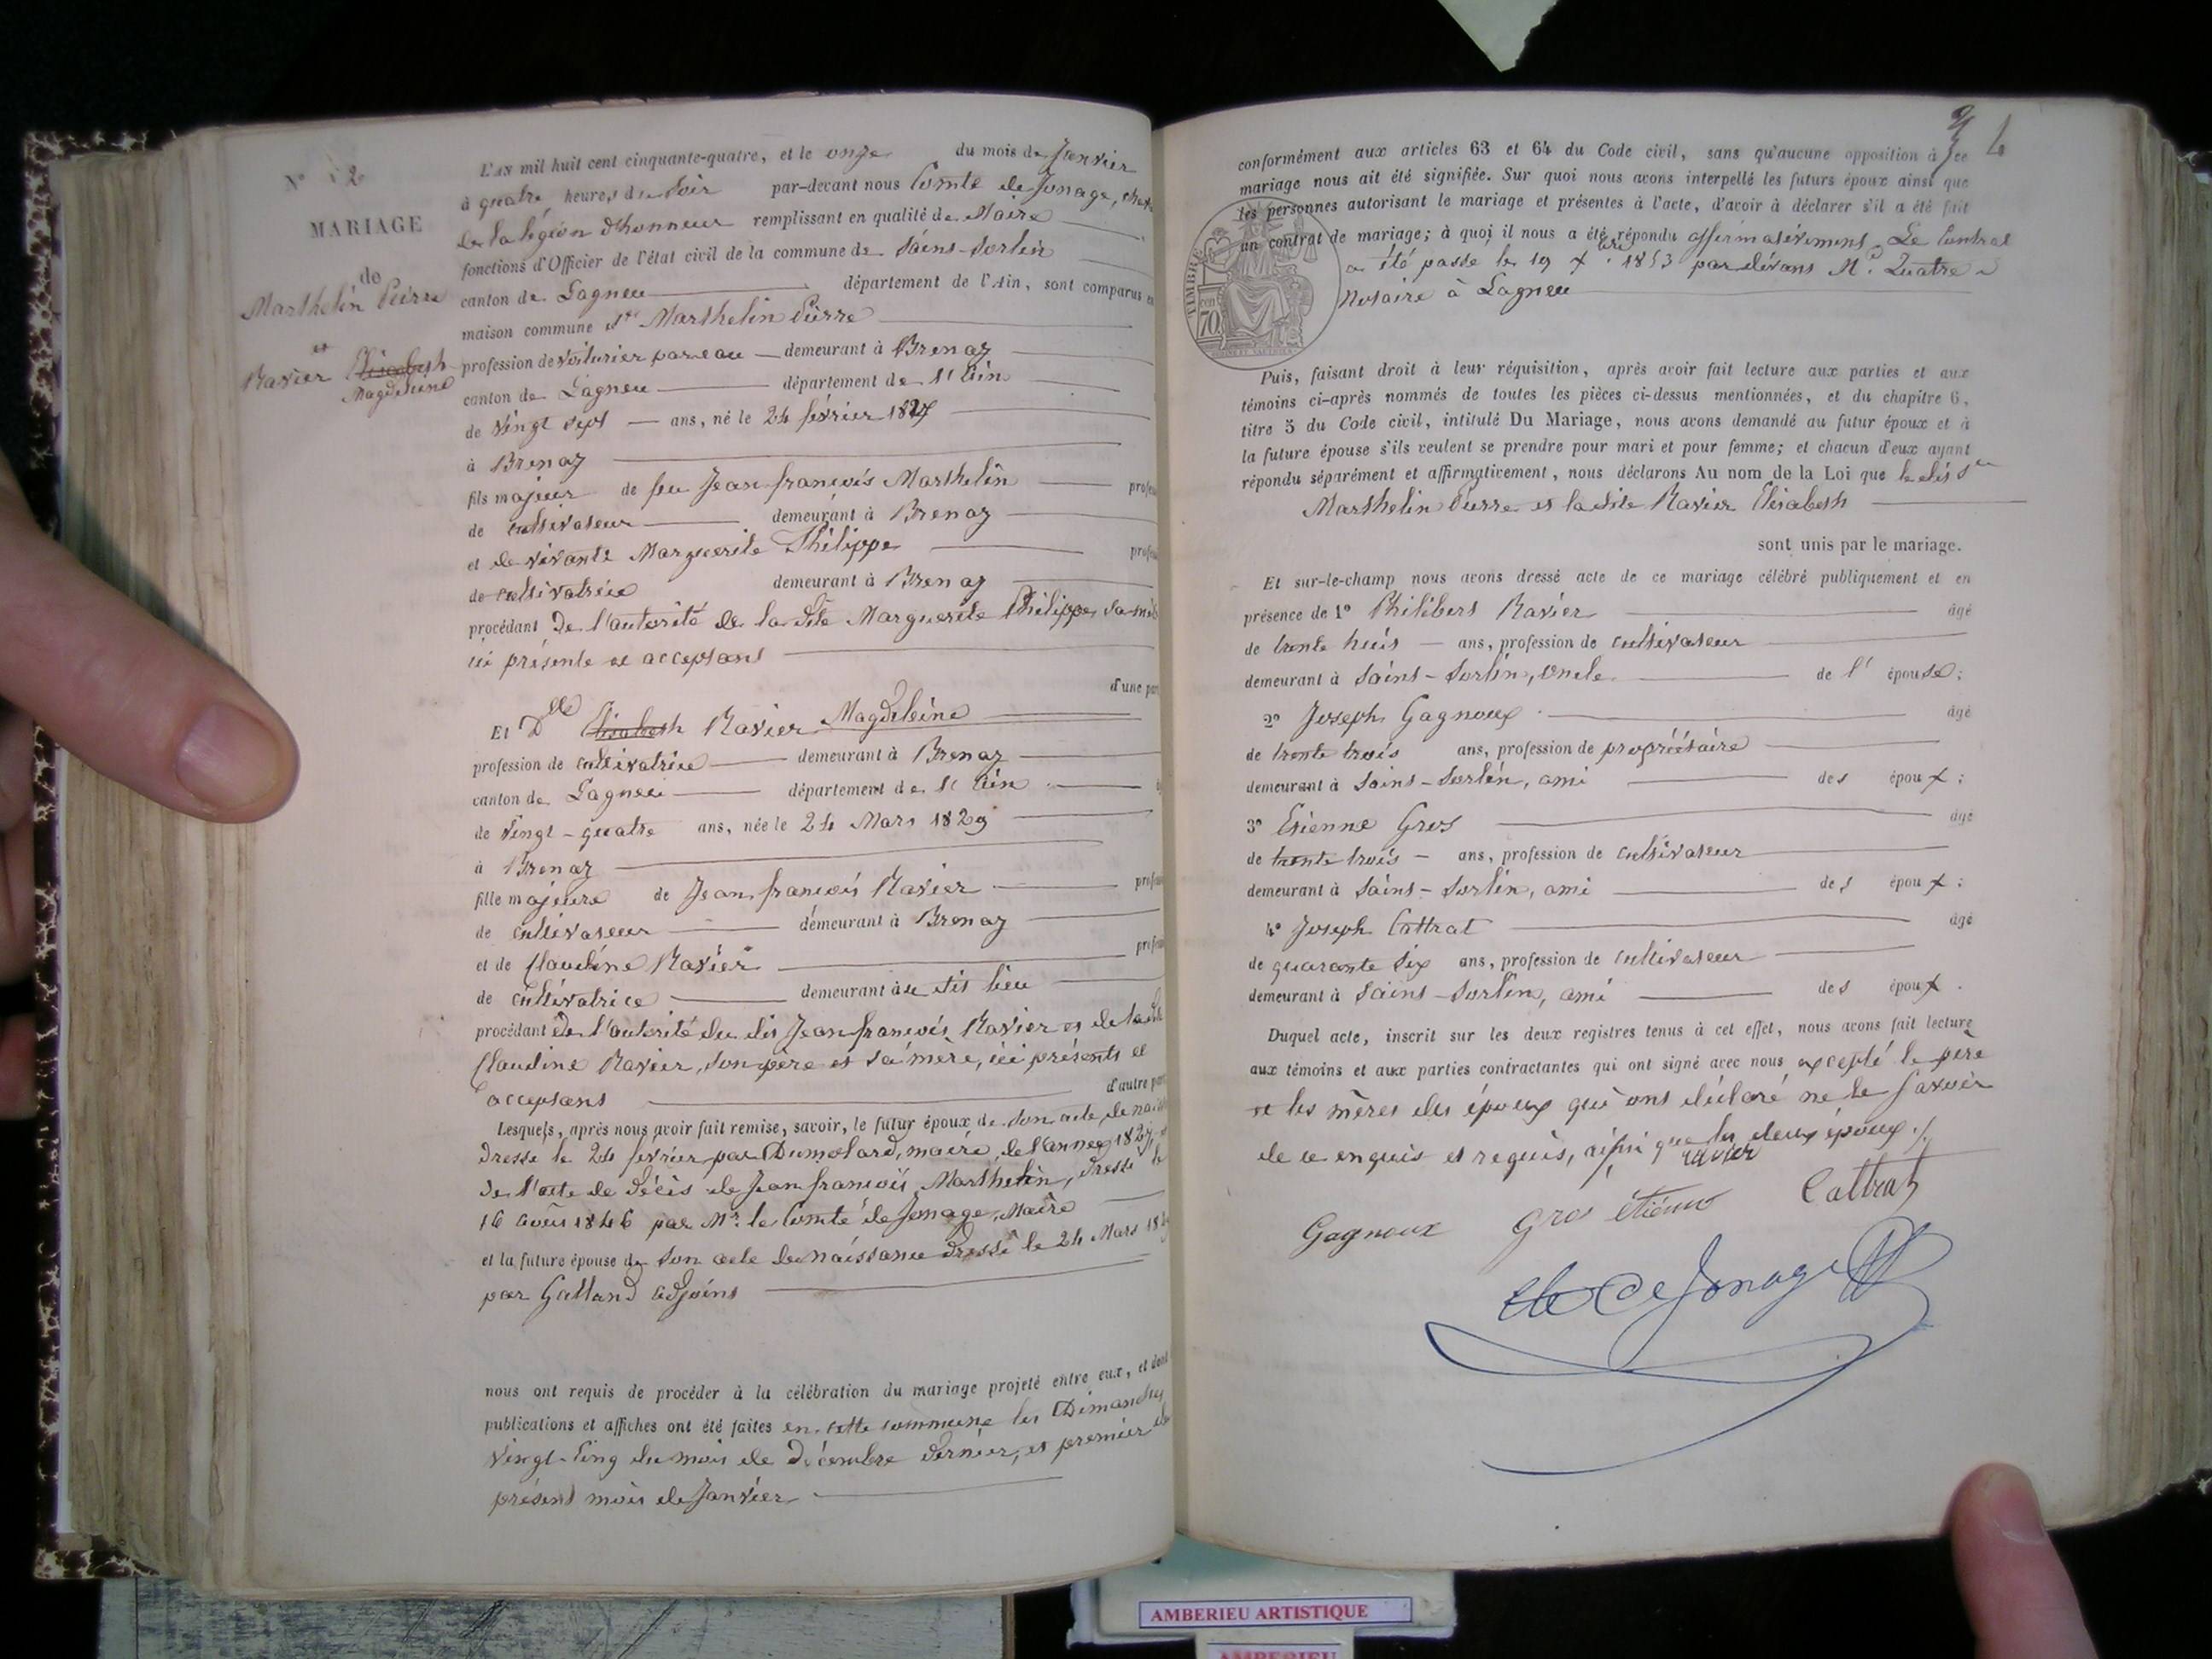 N° 2
MARIAGE
de
Marthelin Pierre
et
Ravier Elisabeth
Magdeleine
L'AN mil huit cent cinquante-quatre, et le onze du mois de Janvier
à quatre heures du Soir par-devant nous Comte de Jonage,
de la légion d'honneur remplissant en qualité de Maire
fonctions d'Officier de l'état civil de la commune de Saint-Sorlin
canton de Lagneu département de l'Ain, sont comparus en
maison commune Sr Marthelin Pierre
profession de voiturier par eau demeurant à Brenaz
canton de Lagneu département de l'Ain
de Vingt sept ans, né le 24 février 1827
à Brenaz
fils majeur de feu Jean françois Marthelin
de cultivateur demeurant à Brenaz
et de vivante Marguerite Philippe
de cultivatrice demeurant à Brenaz
procédant De l'autorité de la dite Marguerite Philippe, sa
ici présente et acceptant
d'une part
Et Dlle Elisabeth Ravier Magdeleine
profession de cultivatrice demeurant à Brenaz
canton de Lagneu département de l'Ain
de Vingt-quatre ans, née le 24 Mars 1829
à Brenaz
fille majeure de Jean françois Ravier
de cultivateur demeurant à Brenaz
et de Claudine Ravier
de cultivatrice demeurant au dit lieu
procédant de l'autorité du dit Jean françois Ravier et de la dite
Claudine Ravier, son père et sa mère, ici présents et
acceptant
d'autre part
Lesquels, après nous avoir fait remise, savoir, le futur époux de son acte de
dressé le 24 février par Dumolard, maire, de l'année 1827, et
de l'acte de décès de Jean françois Marthelin, dressé le
16 août 1846 par Mr. le Comte de Jonage, Maire
et la future épouse de son acte de naissance dressé le 24 Mars
par Galland adjoint
nous ont requis de procéder à la célébration du mariage projeté entre eux, et dont
publications et affiches ont été faites en cette commune les Dimanches
Vingt-cinq du mois de Décembre dernier, et premier du
présent mois de Janvier
4
conformément aux articles 63 et 64 du Code civil, sans qu'aucune opposition à ce
mariage nous ait été signifiée. Sur quoi nous avons interpellé les futurs époux ainsi que
les personnes autorisant le mariage et présentes à l'acte, d'avoir à déclarer s'il a été fait
un contrat de mariage; à quoi il nous a été répondu affirmativement. Le Contrat
a été passé le 19 Xbre 1853 par devant Me. Quatre
Notaire à Lagneu
TIMBRE
70
Puis, faisant droit à leur réquisition, après avoir fait lecture aux parties et aux
témoins ci-après nommés de toutes les pièces ci-dessus mentionnées, et du chapitre 6,
titre 5 du Code civil, intitulé Du Mariage, nous avons demandé au futur époux et à
la future épouse s'ils veulent se prendre pour mari et pour femme; et chacun d'eux ayant
répondu séparément et affirmativement, nous déclarons Au nom de la Loi que le dit Sr
Marthelin Pierre et la dite Ravier Elisabeth
sont unis par le mariage.
Et sur-le-champ nous avons dressé acte de ce mariage célébré publiquement et en
présence de 1° Philibert Ravier âgé
de trente huit ans, profession de cultivateur
demeurant à Saint-Sorlin, oncle de l' épouse;
2° Joseph Gagnoux âgé
de trente trois ans, profession de propriétaire
demeurant à Saint-Sorlin, ami des époux;
3° Etienne Gros âgé
de trente trois ans, profession de cultivateur
demeurant à Saint-Sorlin, ami des époux;
4° Joseph Cattrat âgé
de quarante six ans, profession de cultivateur
demeurant à Saint-Sorlin, ami des époux.
Duquel acte, inscrit sur les deux registres tenus à cet effet, nous avons fait lecture
aux témoins et aux parties contractantes qui ont signé avec nous excepté le père
et les mères des époux qui ont déclaré ne le savoir
de ce enquis et requis, ainsi que les deux époux ./.
ravier
Gagnoux gros étienne Cattrat
Cte De Jonage
AMBERIEU ARTISTIQUE
AMBERIEU